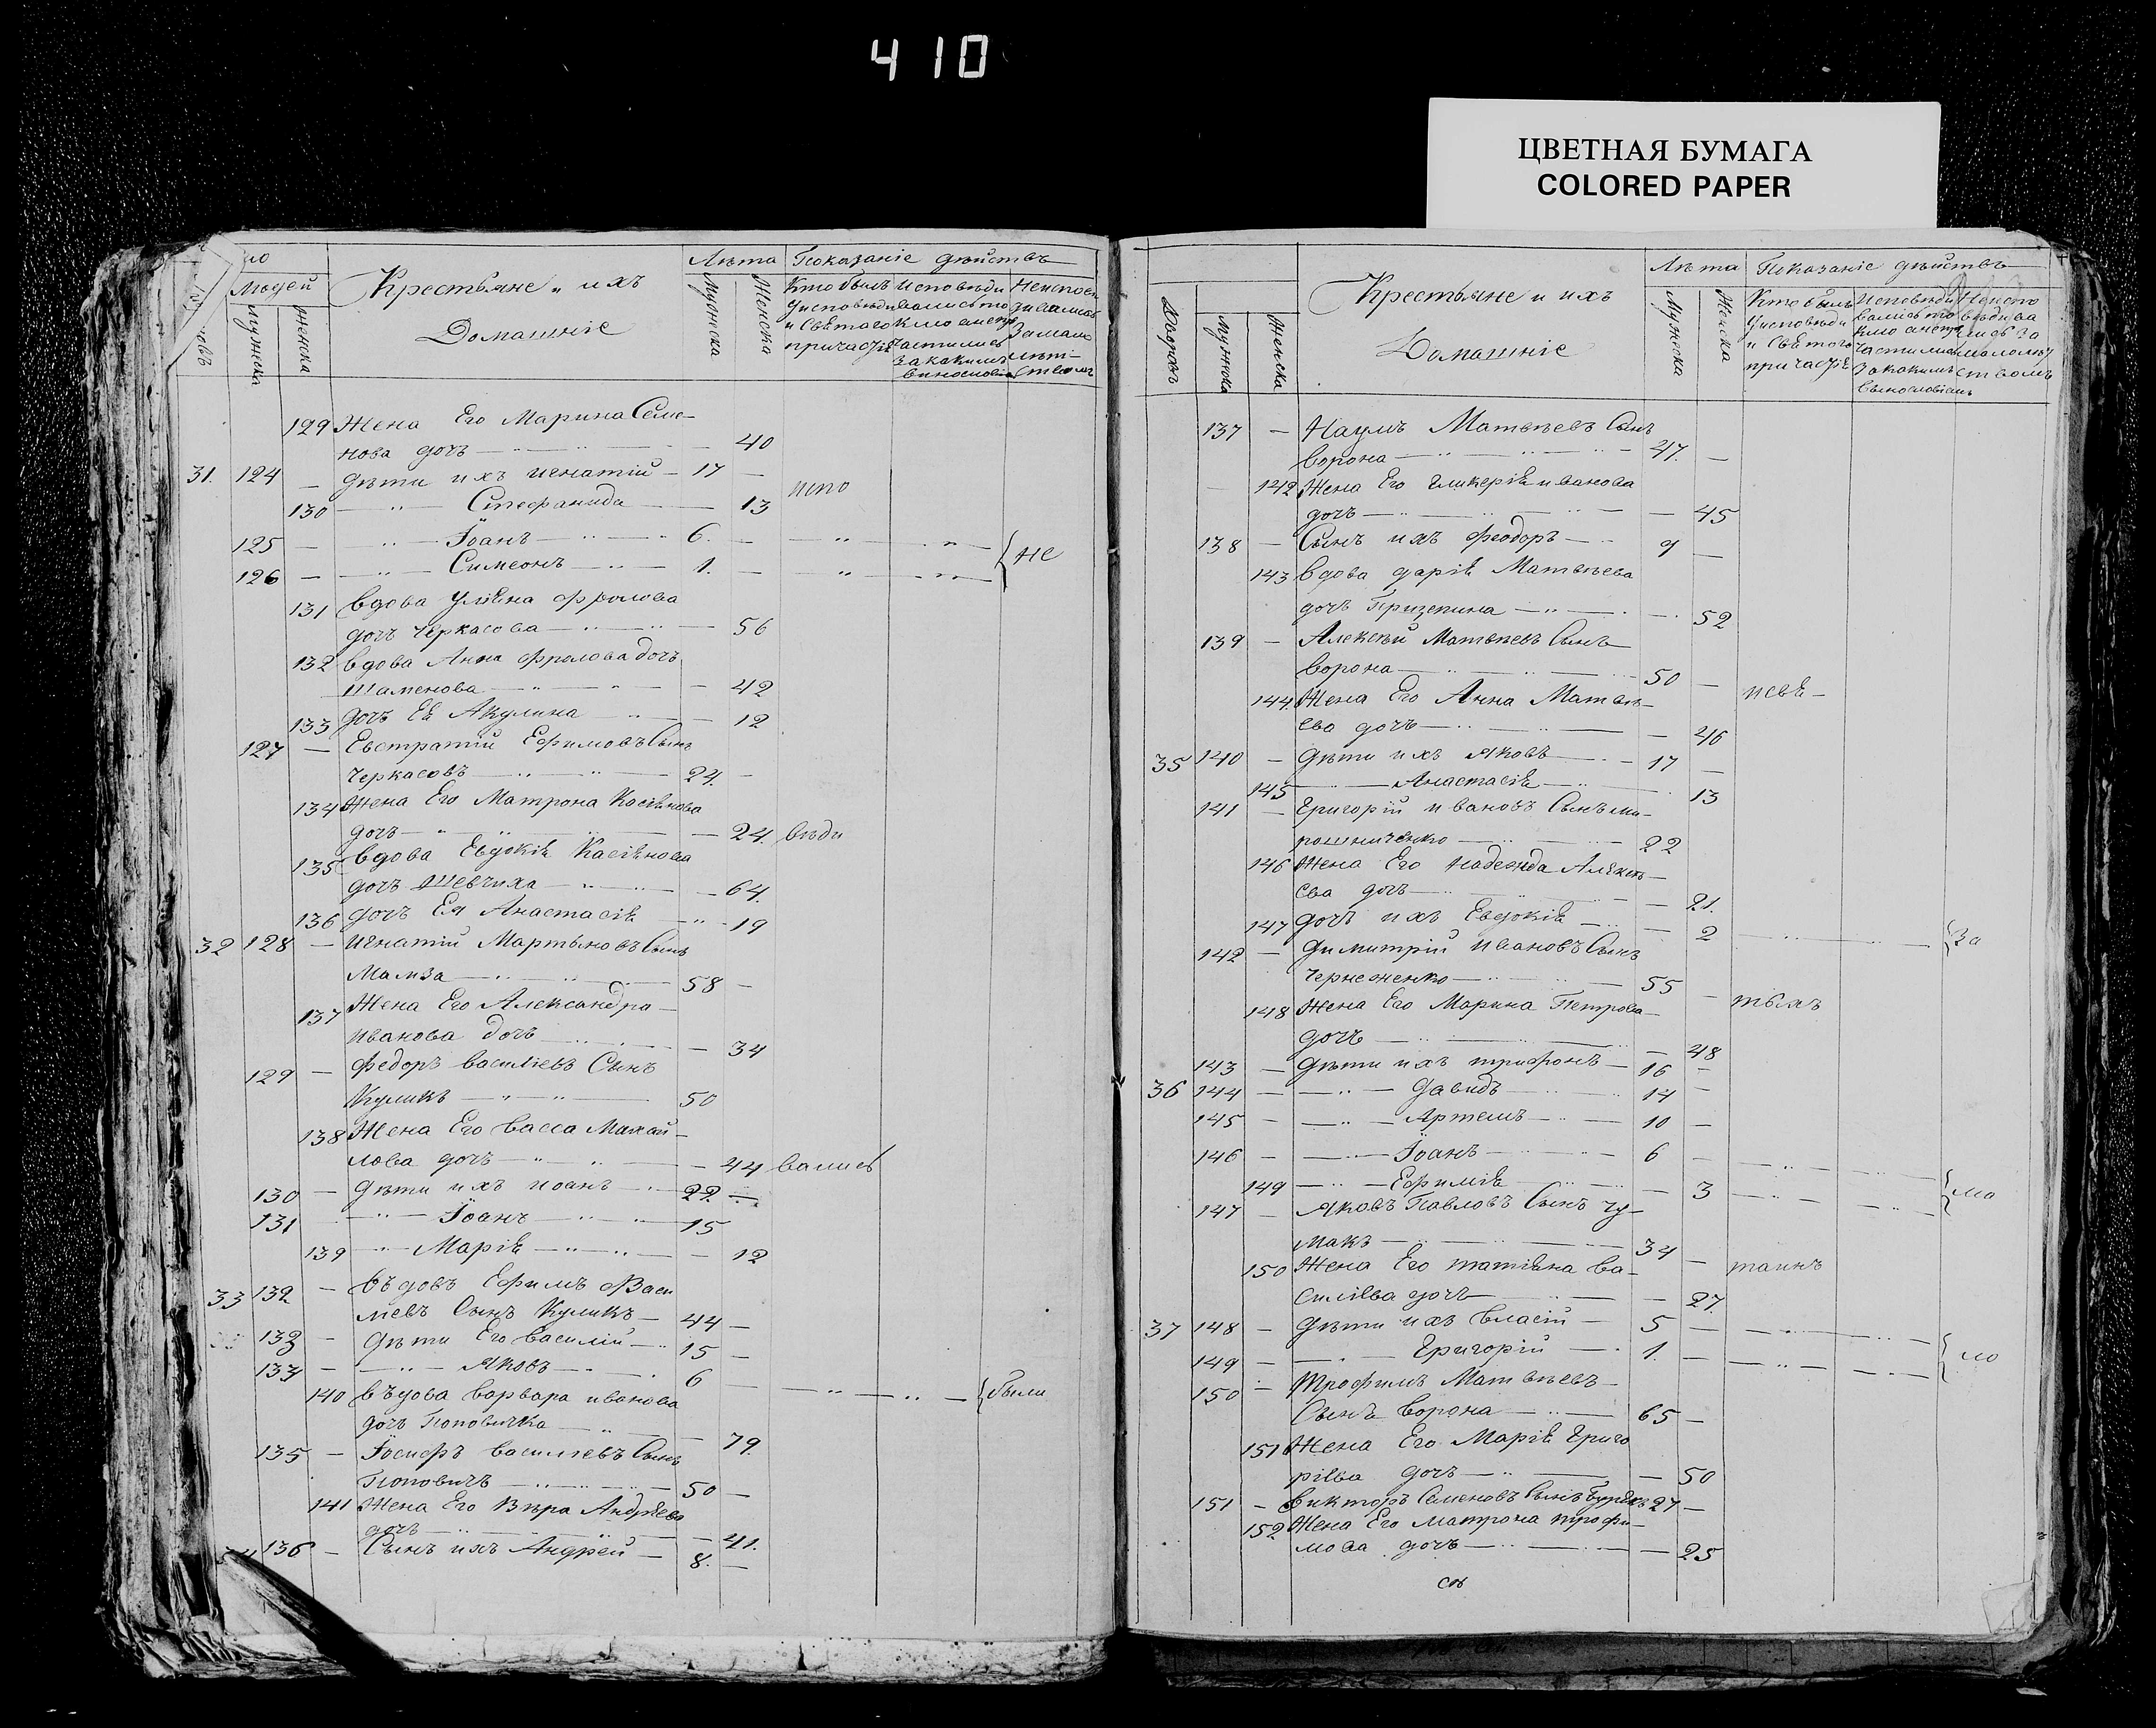 410
ЦВЕТНАЯ БУМАГА
COLORED PAPER
Людей
Мужеска
Женска
Крестьяне и ихъ
Домашніе
Лѣта
Мужеска
Женска
Показаніе дѣйствъ
Кто былъ
У исповѣди
и Свѣтаго
причастія
Исповѣди
вались то
кмо а не пр
частились
за какимъ
винословіе
Неиспов
Замало
лѣт
ствомъ
129 Жена Его Марина Семе-
нова дочъ — 40
31. 124 — Дѣти ихъ Игнатій — 17 —
испо
130 — Стефанида — 13
125 — Іоанъ — 6. —
126 — Симеонъ — 1. — { не
131 Вдова Уліяна Фролова
дочъ Черкасова — 56
132 Вдова Анна Фролова дочъ
Шаменова — 42
133 дочъ Ея Акулина — 12
127 — Евстратій Ефимовъ Сынъ
Черкасовъ — 24. —
134 Жена Его Матрона Косіянова
дочъ — 24. вѣди
135 Вдова Евдокія Касіянова
дочъ Шевчиха — 64.
136 дочъ Ея Анастасія — 19
32 128 — Игнатій Мартыновъ Сынъ
Мамза — 58 —
137 Жена Его Александра
Иванова дочъ — 34
129 — Федоръ Василіевъ Сынъ
Куликъ — 50
138 Жена Его Васса Михай-
лова дочъ — 44 вались
130 — Дѣти ихъ Иоанъ — 22 —
131 — Іоанъ — 15
139 — Марія — 12
33 132 — Въдовъ Ефимъ Васи
ліевъ Сынъ Куликъ — 44 —
133 — Дѣти Его Василій — 15 —
134 — Яковъ — 6 — { были
140 Въдова Варвара Иванова
дочъ Поповичка — 79.
135 — Іосифъ Василіевъ Сынъ
Поповичъ — 50 —
141 Жена Его Вѣра Андрѣева
дочъ — 41.
136 — Сынъ ихъ Андрей — 8. —
Дворовъ
Мужеска
Женска
Крестьяне и ихъ
Домашніе
Лѣта
Мужеска
Женска
Показаніе дѣйствъ
Кто былъ
У исповѣди
и Свѣтаго
причастія
Исповѣди
вались то
кмо а не пр
частились
за какимъ
винословіемъ
Неиспо
вѣдива
лись за
малолѣт
ствомъ
137 — Наумъ Матвѣевъ Сынъ
Ворона — 47. —
142 Жена Его Гликерія Иванова
дочъ — 45
138 — Сынъ ихъ Феодоръ — 9 —
143 Вдова Дарія Матвѣева
дочъ Призепина — 52
139 — Алексѣй Матвѣевъ Сынъ
Ворона — 50 —
144. Жена Его Анна Матвѣ-
ева дочъ — 46
35 140 — Дѣти ихъ Яковъ — 17 —
145 — Анастасія — 13
141 — Григорій Ивановъ Сынъ Ми-
рошниченко — 22
146 Жена Его Надежда Алексѣ-
ева дочъ — 21.
147 дочъ ихъ Евдокія — 2 — { За
142 — Димитрій Ивановъ Сынъ
Чернеженко — 55 — тыхъ
148 Жена Его Марина Петрова
дочъ — 48
143 — Дѣти ихъ Трифонъ — 16 —
36 144 — Давидъ — 14 —
145 — Артемъ — 10 —
146 — Іоанъ — 6 —
149 — Ефимія — 3 — { ма
147 — Яковъ Павловъ Сынъ Чу-
макъ — 34 —
150 Жена Его Татіяна Ва- таинъ
силіева дочъ — 27
37 148 — Дѣти ихъ Власій — 5 —
149 — Григорій — 1. — { ло
150 — Трофимъ Матвѣевъ
Сынъ Ворона — 65 —
151 Жена Его Марія Григо
ріева дочъ — 50
151 — Викторъ Семеновъ Сынъ 27 —
152 Жена Его Матрона Трофи-
мова дочъ — 25